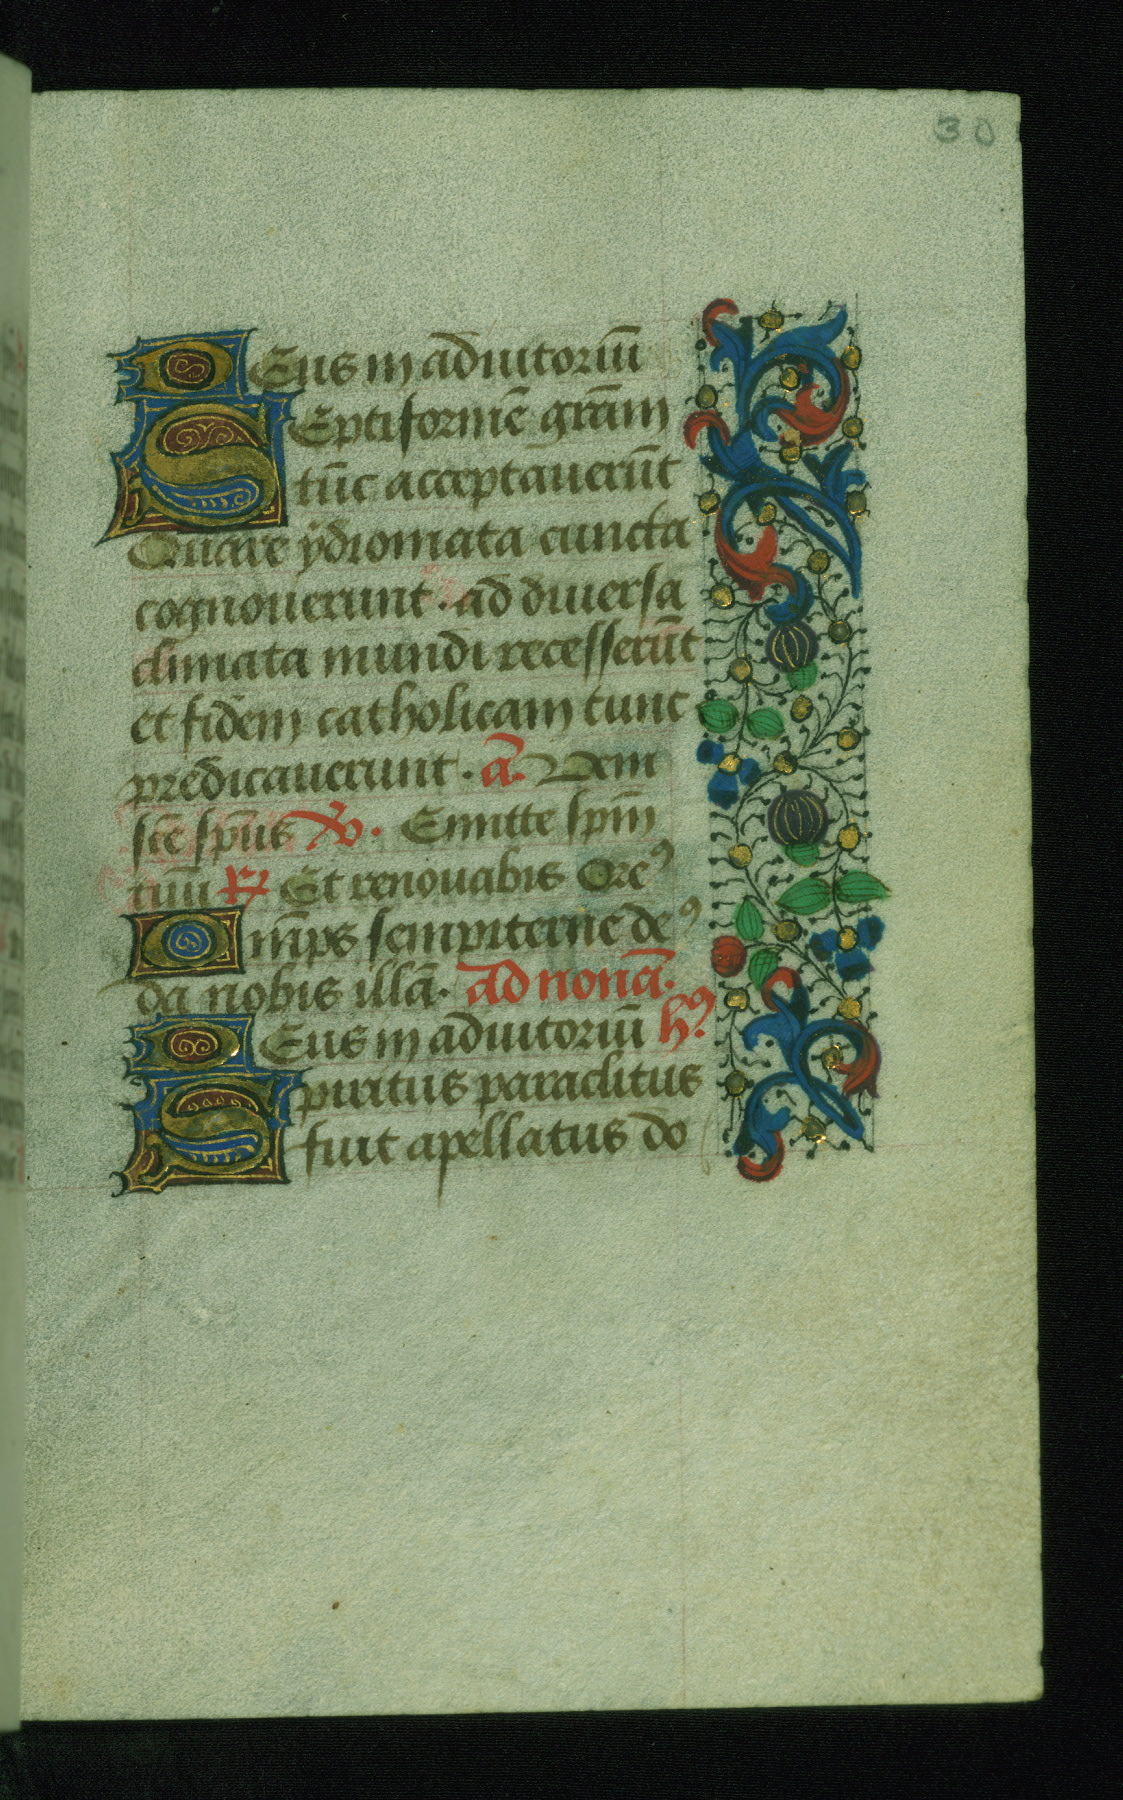 30
DEus in adiutoriū
SEptiformē grām
tūc acceptauerūt
Quare ydiomata cuncta
cognouerunt · ad diuersa
climata mundi recesserūt
et fidem catholicam tunc
predicauerunt · a. Ueni
sc̄e sp̄us V. Emitte sp̄m
tuū R Et renouabis Orꝰ
Om̄ps sempiterne deꝰ
da nobis illā · ad nonā.
DEus in adiutoriū hꝰ.
Spiritus paraclitus
fuit apellatus do